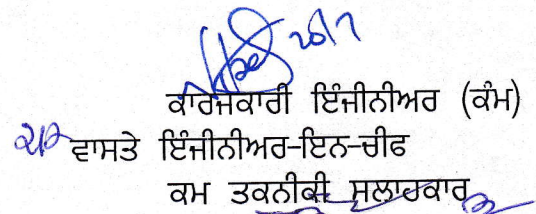 26/7
ਕਾਰਜਕਾਰੀ ਇੰਜੀਨੀਅਰ (ਕੰਮ)
ਵਾਸਤੇ ਇੰਜੀਨੀਅਰ-ਇਨ-ਚੀਫ
ਕਮ ਤਕਨੀਕੀ ਸਲਾਹਕਾਰ